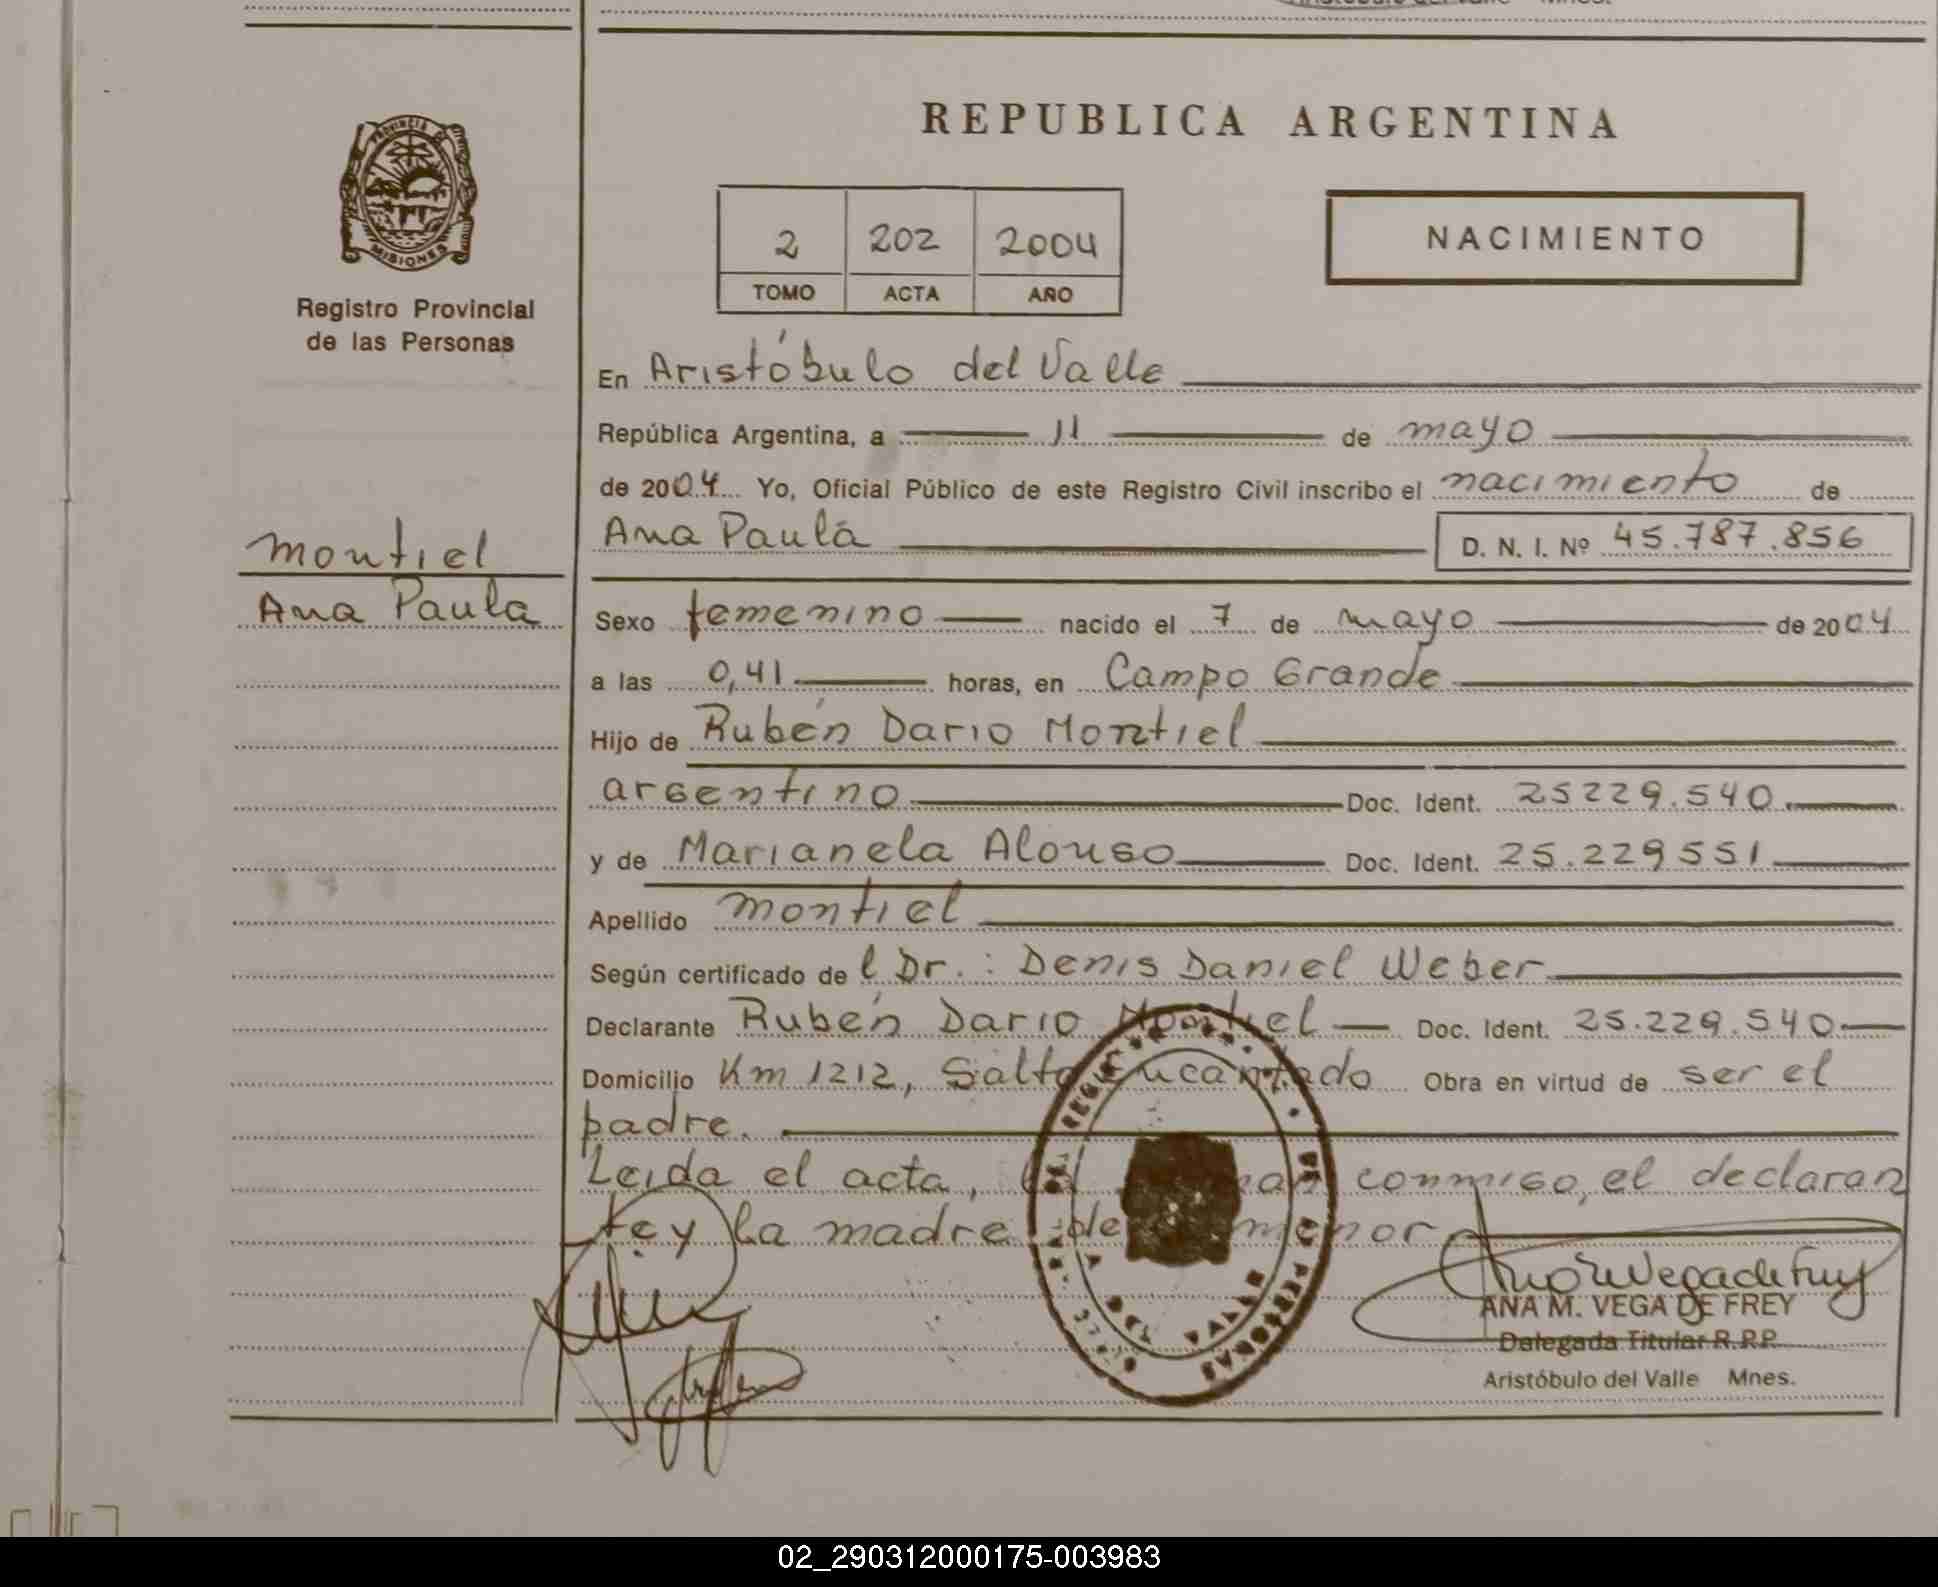 PROVINCIA DE
MISIONES
Registro Provincial
de las Personas
Montiel
Ana Paula
REPUBLICA ARGENTINA
2 202 2004
TOMO ACTA AÑO
NACIMIENTO
En Aristóbulo del Valle
República Argentina, a 11 de mayo
de 2004 Yo, Oficial Público de este Registro Civil inscribo el nacimiento de
Ana Paula D. N. I. Nº 45.787.856
Sexo femenino nacido el 7 de mayo de 2004
a las 0,41 horas, en Campo Grande
Hijo de Rubén Dario Montiel
argentino Doc. Ident. 25229.540
y de Marianela Alonso Doc. Ident. 25.229551
Apellido Montiel
Según certificado de l Dr.: Denis Daniel Weber
Declarante Rubén Dario Montiel Doc. Ident. 25.229.540
Domicilio Km 1212, Salto Encantado Obra en virtud de ser el
padre.
Leida el acta, conmigo, el declaran
te y la madre de menor
ANA M. VEGA DE FREY
Delegada Titular R.P.P.
Aristóbulo del Valle Mnes.
02_290312000175-003983